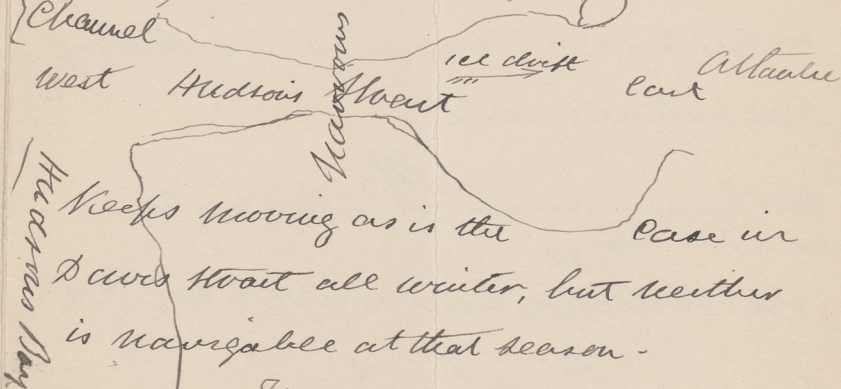 Channel
West Hudson's Strait
Narrows
ice drift
East Atlantic
Hudsons Bay
Keeps moving as is the case in
Davis Strait all winter, but neither
is navigable at that season -